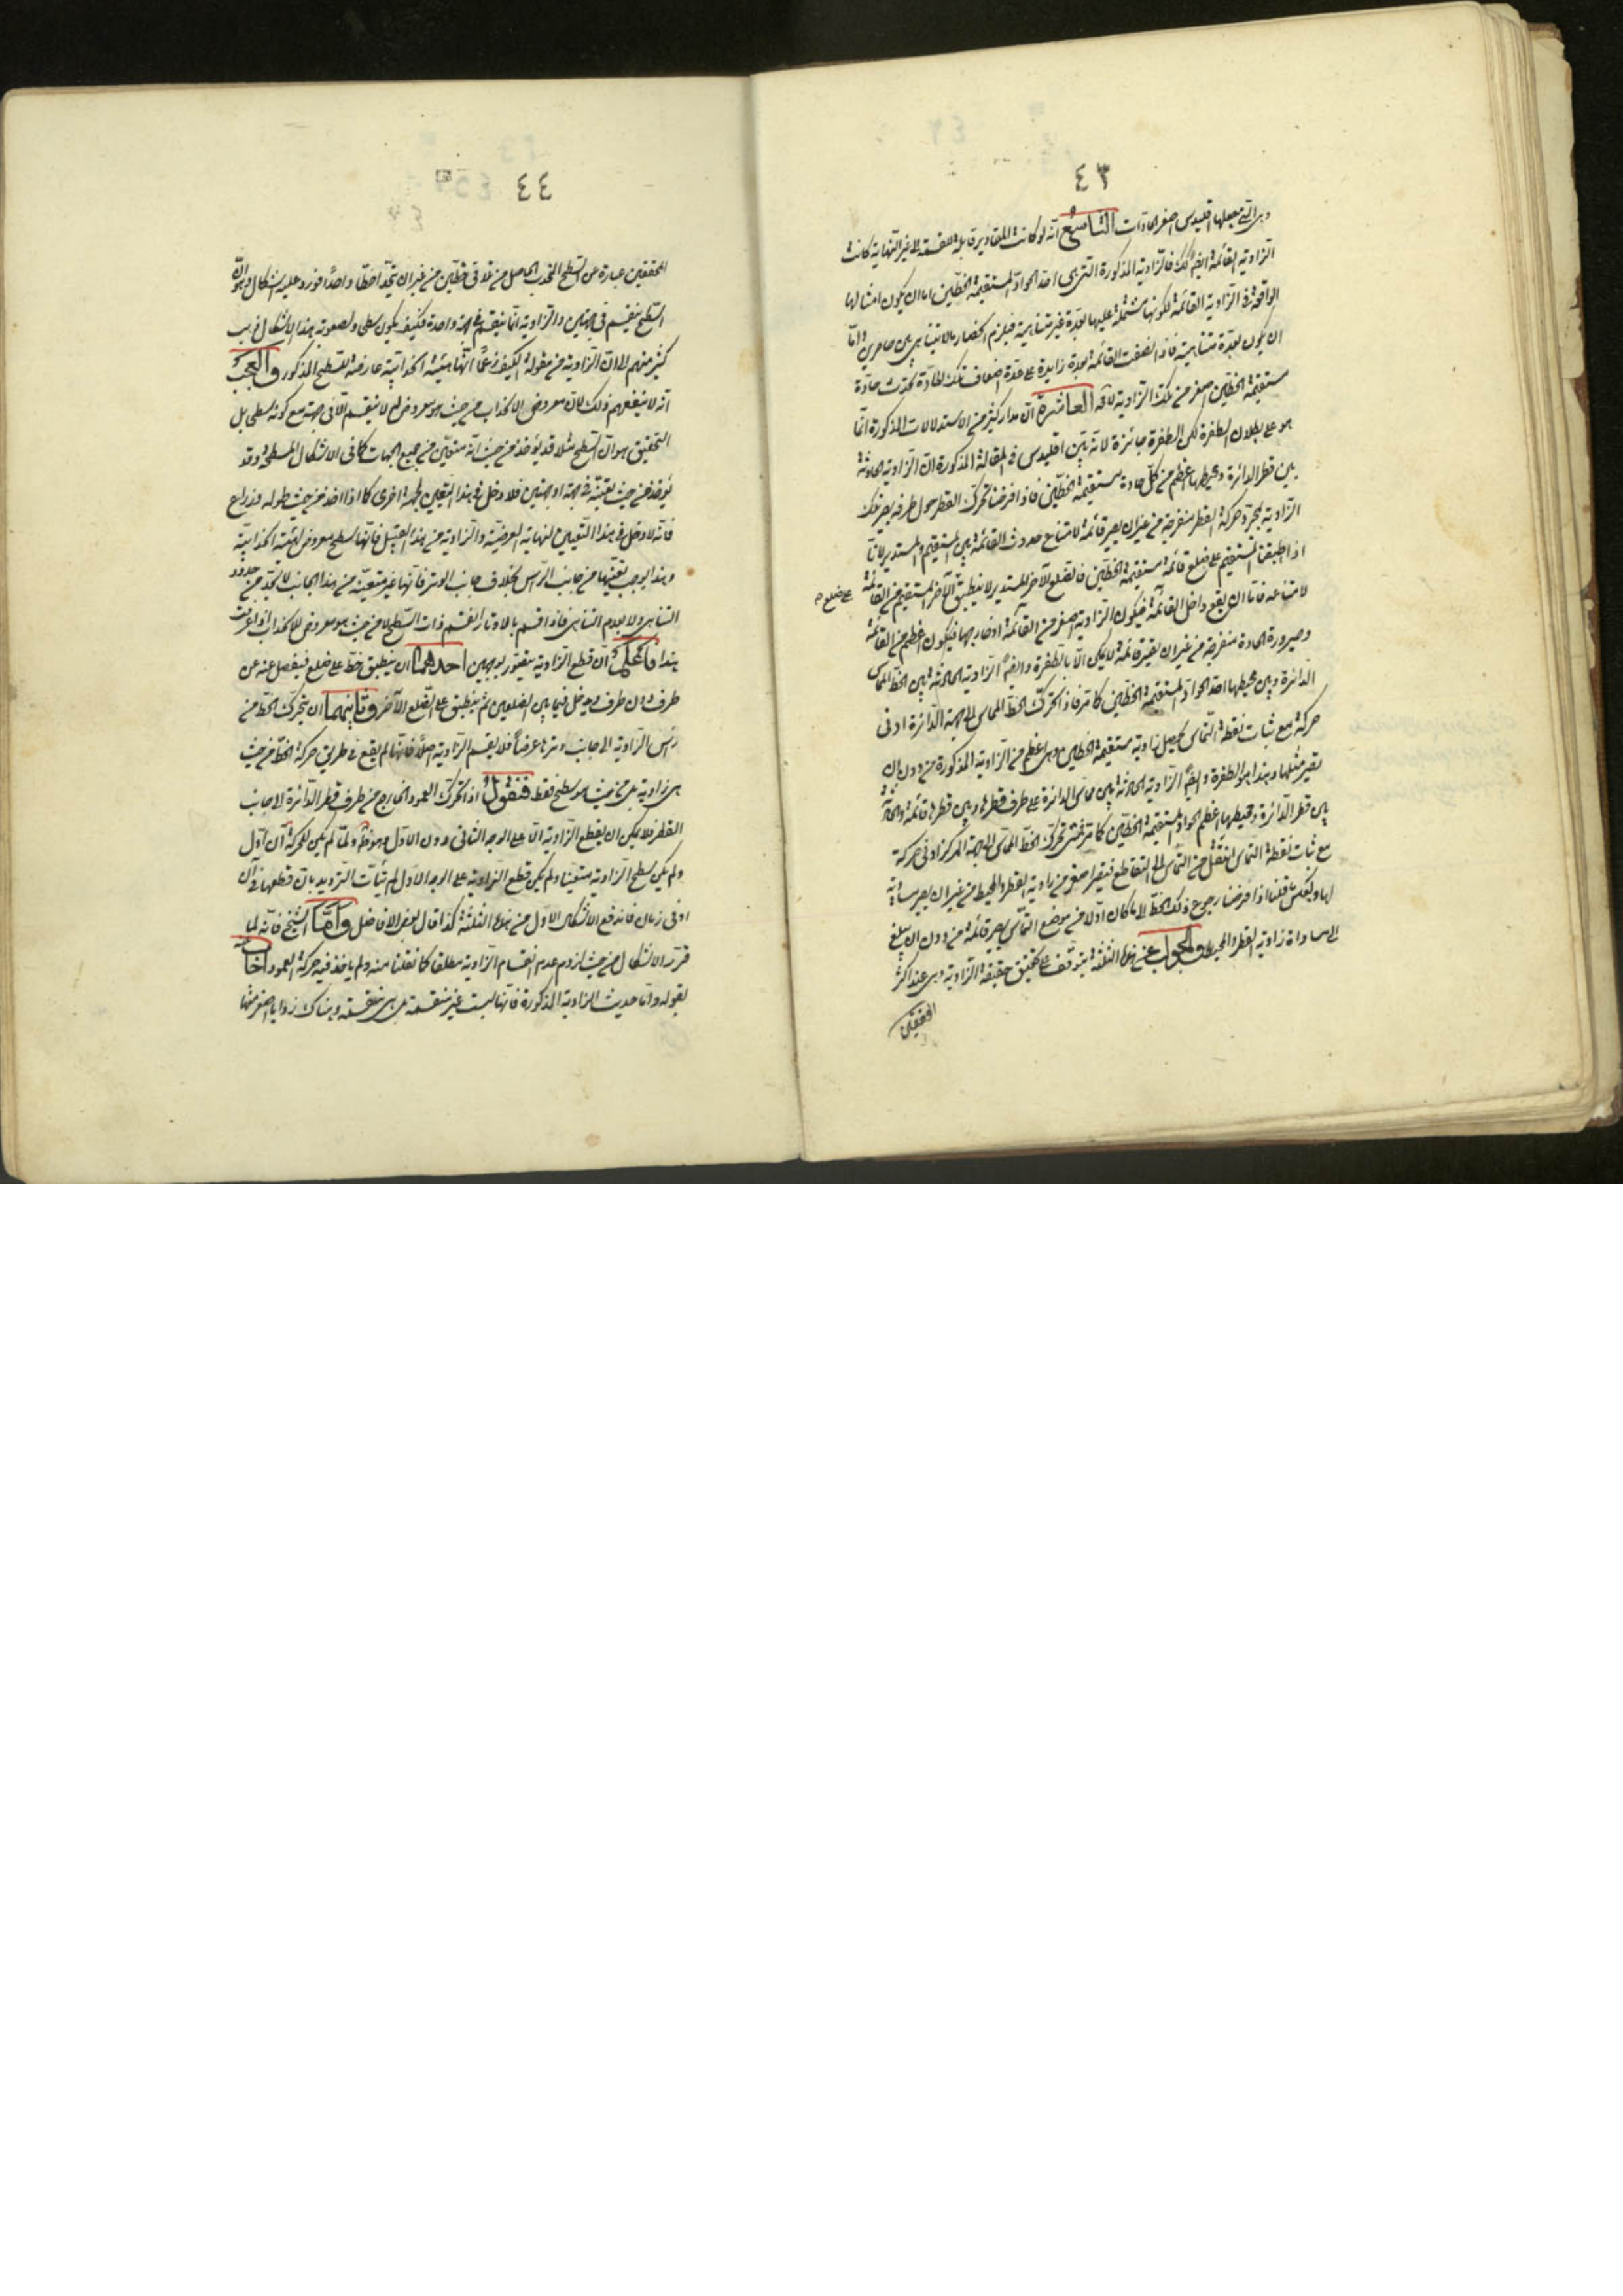 ٤٣
وهى التى جعلها اقليدس اصغر الحادات التاسع انه لو كانت المقادير قابلة للقسمة الى غير النهاية كانت
الزاوية القائمة ايضا كذلك فالزاوية المذكورة التى هى احد الحواد المستقيمة الخطين اما ان يكون امثالها
الواقعة فى الزاوية القائمة لكونها مشتملة عليها بعدة غير متناهية فيلزم انحصار ما لا يتناهى بين حاصرين واما
ان يكون بعدة متناهية فاذا نصفت القائمة بعدة زايدة على عدة اضعاف تلك الحادة يحدث حادة
مستقيمة الخطين اصغر من تلك الزاوية العاشرة ان مدار كثير من الاستدلالات المذكورة انما
هو على بطلان الطفرة لكن الطفرة جائزة لانه بين اقليدس فى المقالة المذكورة ان الزاوية الحادثة
بين قطر الدائرة ومحيطها اعظم من كل حادة مستقيمة الخطين فاذا فرضنا تحرك القطر حول طرفه يصير تلك
الزاوية بمجرد حركة القطر منفرجة من غير ان يصير قائمة لامتناع حدوث القائمة بين المستقيم والمستدير لانا
اذا طبقنا المستقيم على ضلع قائمة مستقيمة الخطين فالضلع الآخر المستدير لا ينطبق الآخر المستقيم من القائمة
على ضلع
لامتناعه فاما ان يقع داخل القائمة فيكون الزاوية اصغر من القائمة او خارجها فيكون اعظم من القائمة
وصيرورة الحادة منفرجة من غير ان تصير قائمة لا يمكن الا بالطفرة وايضا الزاوية الحادثة بين الخط المماس
الدائرة وبين محيطها احد الحواد المستقيمة الخطين كما مر فاذا تحرك الخط المماس الى جهة الدائرة ادنى
حركة مع ثبات نقطة التماس يحصل زاوية مستقيمة الخطين وهى اعظم من الزاوية المذكورة من دون ان
تصير مثلها وهذا هو الطفرة وايضا الزاوية الحادثة بين مماس الدائرة على طرف قطرها وبين قطرها قائمة والحادثة
بين قطر الدائرة ومحيطها اعظم الحواد المستقيمة الخطين كما مر فمتى تحرك الخط المماس الى جهة المركز ادنى حركة
مع ثبات نقطة التماس انتقل من التماس الى التقاطع فتصير اصغر من زاوية القطر والمحيط من غير ان يصير مساوية
لها وبعكس ما قلنا اذا فرضنا رجوع ذلك الخط الى ما كان اولا من موضع التماس يصير قائمة من دون ان يبلغ
الى مساواة زاوية القطر والمحيط والجواب عن هذه الثلثة يتوقف على تحقيق حقيقة الزاوية وهى عند اكثر
المحققين
٤٤
المحققين عبارة عن السطح المحدب الحاصل من تلاقى خطين من غير ان يتحدا خطا واحدا فورد عليه اشكال وهو ان
السطح ينقسم فى جهتين والزاوية انما ينقسم فى جهة واحدة فكيف يكون سطحا ولصعوبة هذا الاشكال ذهب
كثير منهم الى ان الزاوية من مقولة الكيف زعما انها هيئة انحدابية عارضة للسطح المذكور والعجب
انه لا ينفعهم ذلك لان معروض الانحداب من حيث هو معروض له لا ينقسم الا فى جهة مع كونه سطحا بل
التحقيق هو ان السطح مثلا قد يؤخذ من حيث انه متعين من جميع الجهات كما فى الاشكال المسطحة وقد
يؤخذ من حيث تعينه فى جهة او جهتين فلا دخل فى هذا التعين لجهة اخرى كما اذا اخذ من حيث طوله ذراع
فانه لا دخل فى هذا التعيين لنهاية العرضية والزاوية من هذا القبيل فانها سطح معروض لهيئة انحدابية
وهذا يوجب تعينها من جانب الرأس بخلاف جانب الوتر فانها غير متعينة من هذا الجانب لا تحد من حدود
التناهى ولا بعدم التناهى فاذا قسم بالاوتار انقسم ذات السطح لا من حيث هو معروض للانحداب اذا عرفت
هذا فاعلم ان قطع الزاوية يتصور بوجهين احدهما ان ينطبق خط على ضلع فينفصل عنه عن
طرف دون طرف ويدخل فيما بين الضلعين ثم ينطبق على الضلع الآخر وثانيهما ان يتحرك الخط من
رأس الزاوية الى جانب وترها عرضا فلا يقسم الزاوية اصلا فانها لم يقع فى طريق حركة الخط من حيث
هى زاوية بل من حيث هو سطح فقط فنقول اذا تحرك العمود الخارج من طرف قطر الدائرة الى جانب
القطر فلا يمكن ان يقطع الزاوية الا على الوجه الثانى دون الاول وهو ظ ولما لم يكن للحركة آن اول
ولم يكن سطح الزاوية متعينا ولم يكن قطع الزاوية على الوجه الاول لم يتأت الترديد بان قطعها فى آن
او فى زمان فاندفع الاشكال الاول من هذه الثلثة كذا قال بعض الافاضل واما الشيخ فانه لما
قرر الاشكال من حيث لزوم عدم انقسام الزاوية مطلقا كما نقلنا منه ولم يأخذ فيه حركة العمود اجاب عنه
بقوله واما حديث الزاوية المذكورة فانها ليست غير منقسمة بل هى منقسمة وهناك زوايا اصغر منها